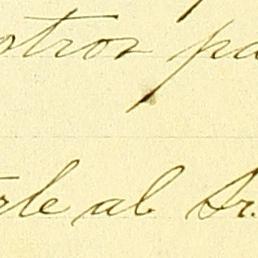 otros pa
rle al Sr.